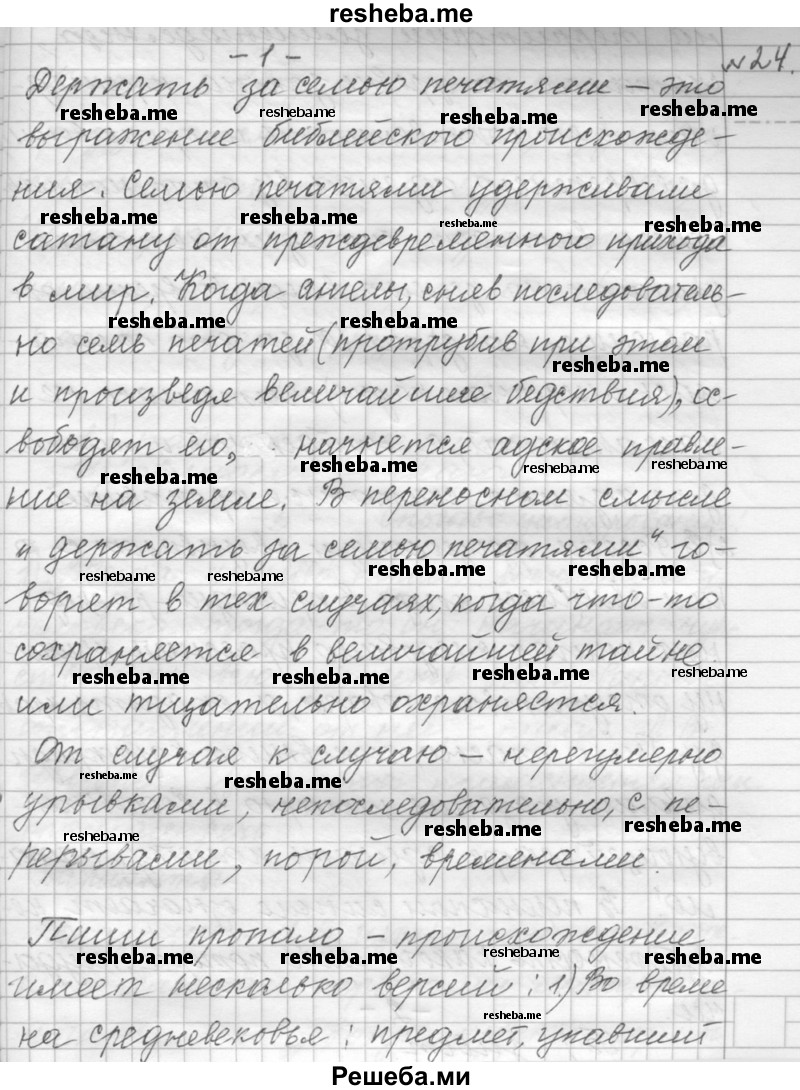 resheba.me
- 1 -
№24.
Держать за семью печатями – это
resheba.me resheba.me resheba.me resheba.me
выражение библейского происхожде-
ния. Семью печатями удерживали
resheba.me resheba.me resheba.me resheba.me
сатану от преждевременного прихода
в мир. Когда ангелы, сняв последователь-
resheba.me resheba.me
но семь печатей (протрубив при этом
resheba.me
и произведя величайшие бедствия), ос-
вободят его, начнется адское правле-
resheba.me resheba.me resheba.me resheba.me
ние на земле. В переносном смысле
„держать за семью печатями“ го-
resheba.me resheba.me resheba.me resheba.me
ворят в тех случаях, когда что-то
сохраняется в величайшей тайне
resheba.me resheba.me resheba.me resheba.me
или тщательно охраняется.
От случая к случаю – нерегулярно
resheba.me resheba.me
урывками, непоследовательно, с пе-
resheba.me resheba.me resheba.me
рерывами, порой, временами.
Пиши пропало – происхождение
resheba.me resheba.me resheba.me resheba.me
имеет несколько версий: 1) Во време
resheba.me
на средневековья: предмет, упавший
Решеба.ми